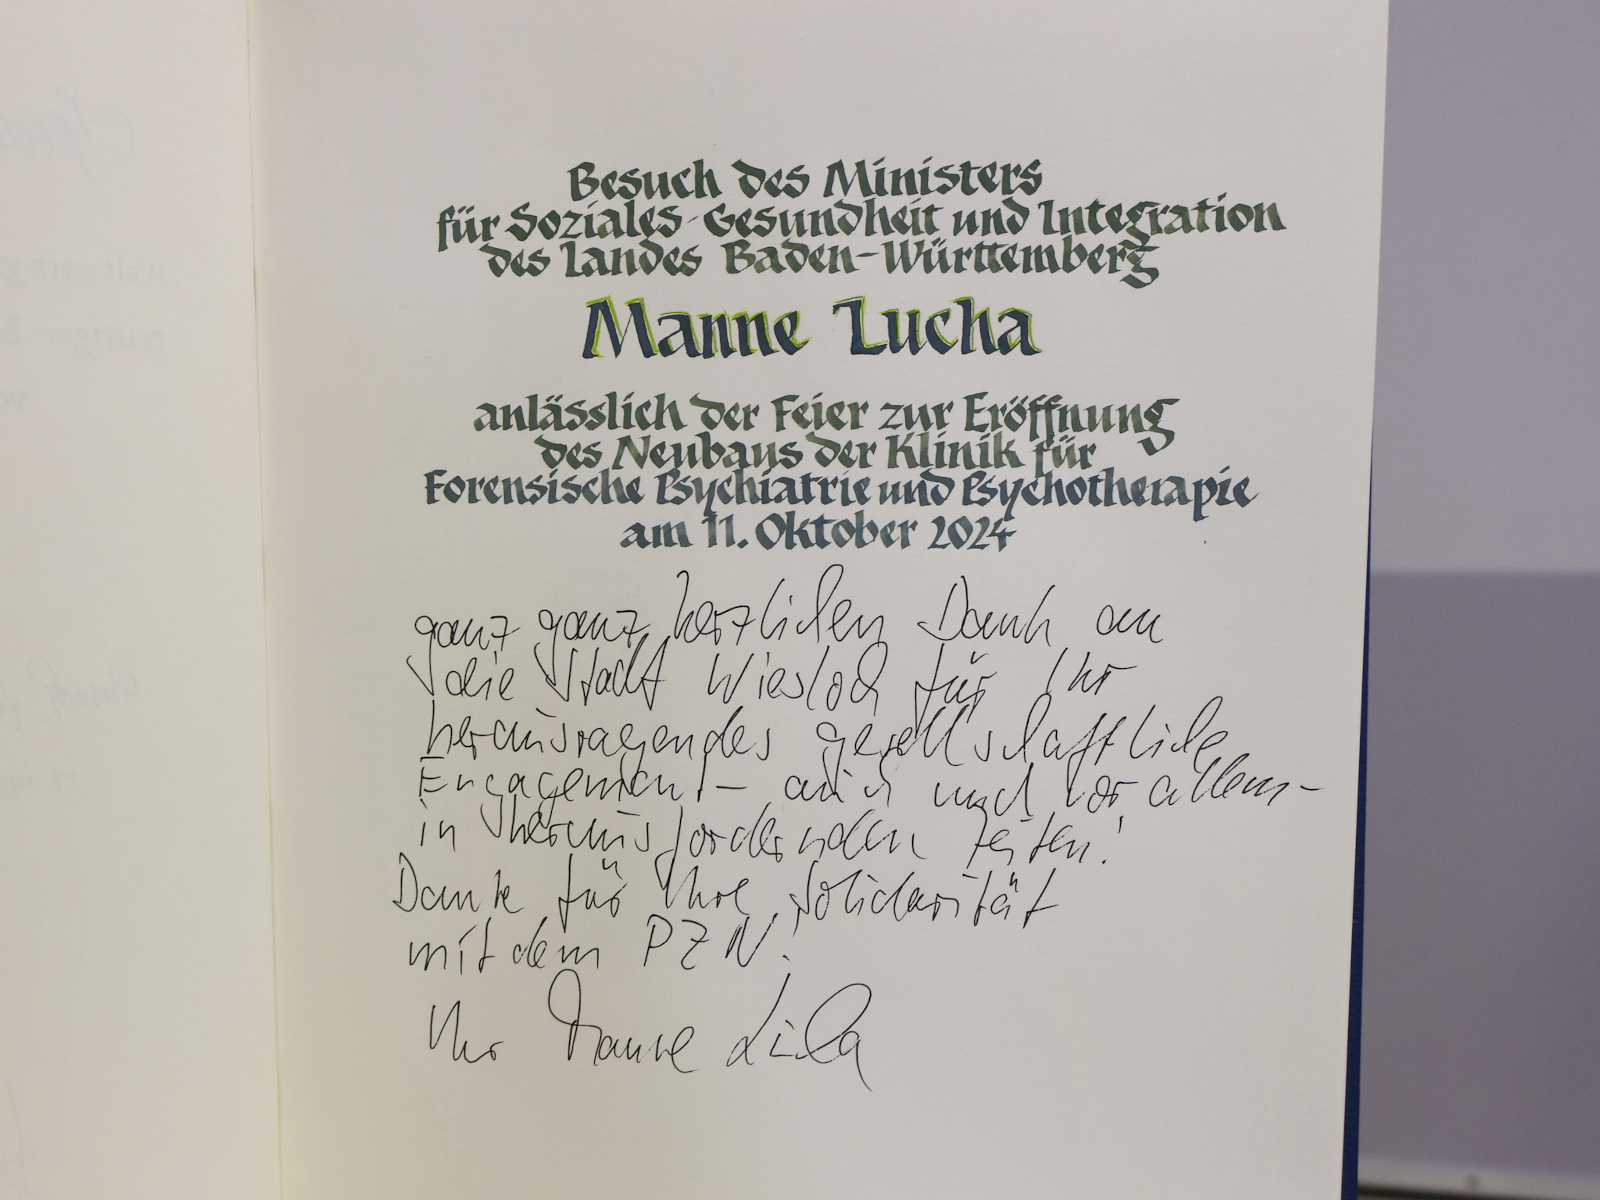 Besuch des Ministers
für Soziales, Gesundheit und Integration
des Landes Baden-Württemberg
Manne Lucha
anlässlich der Feier zur Eröffnung
des Neubaus der Klinik für
Forensische Psychiatrie und Psychotherapie
am 11. Oktober 2024
ganz ganz herzlichen Dank an
die Stadt Wiesloch für Ihr
herausragendes gesellschaftliche
Engagement – auch und vor allem –
in herausfordernden Zeiten!
Danke für Ihre Solidarität
mit dem PZN!
Ihr Manne Lucha